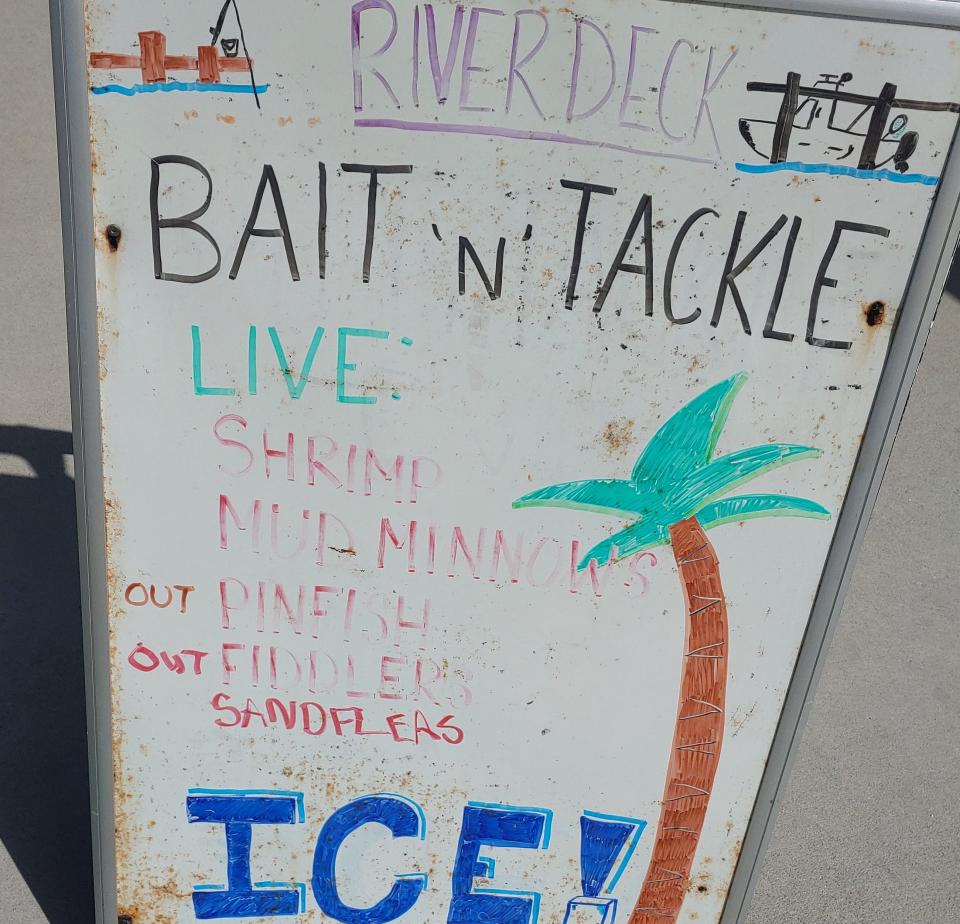 RIVER DECK
BAIT 'N' TACKLE
LIVE:
SHRIMP
MUD MINNOWS
OUT PINFISH
OUT FIDDLERS
SANDFLEAS
ICE!